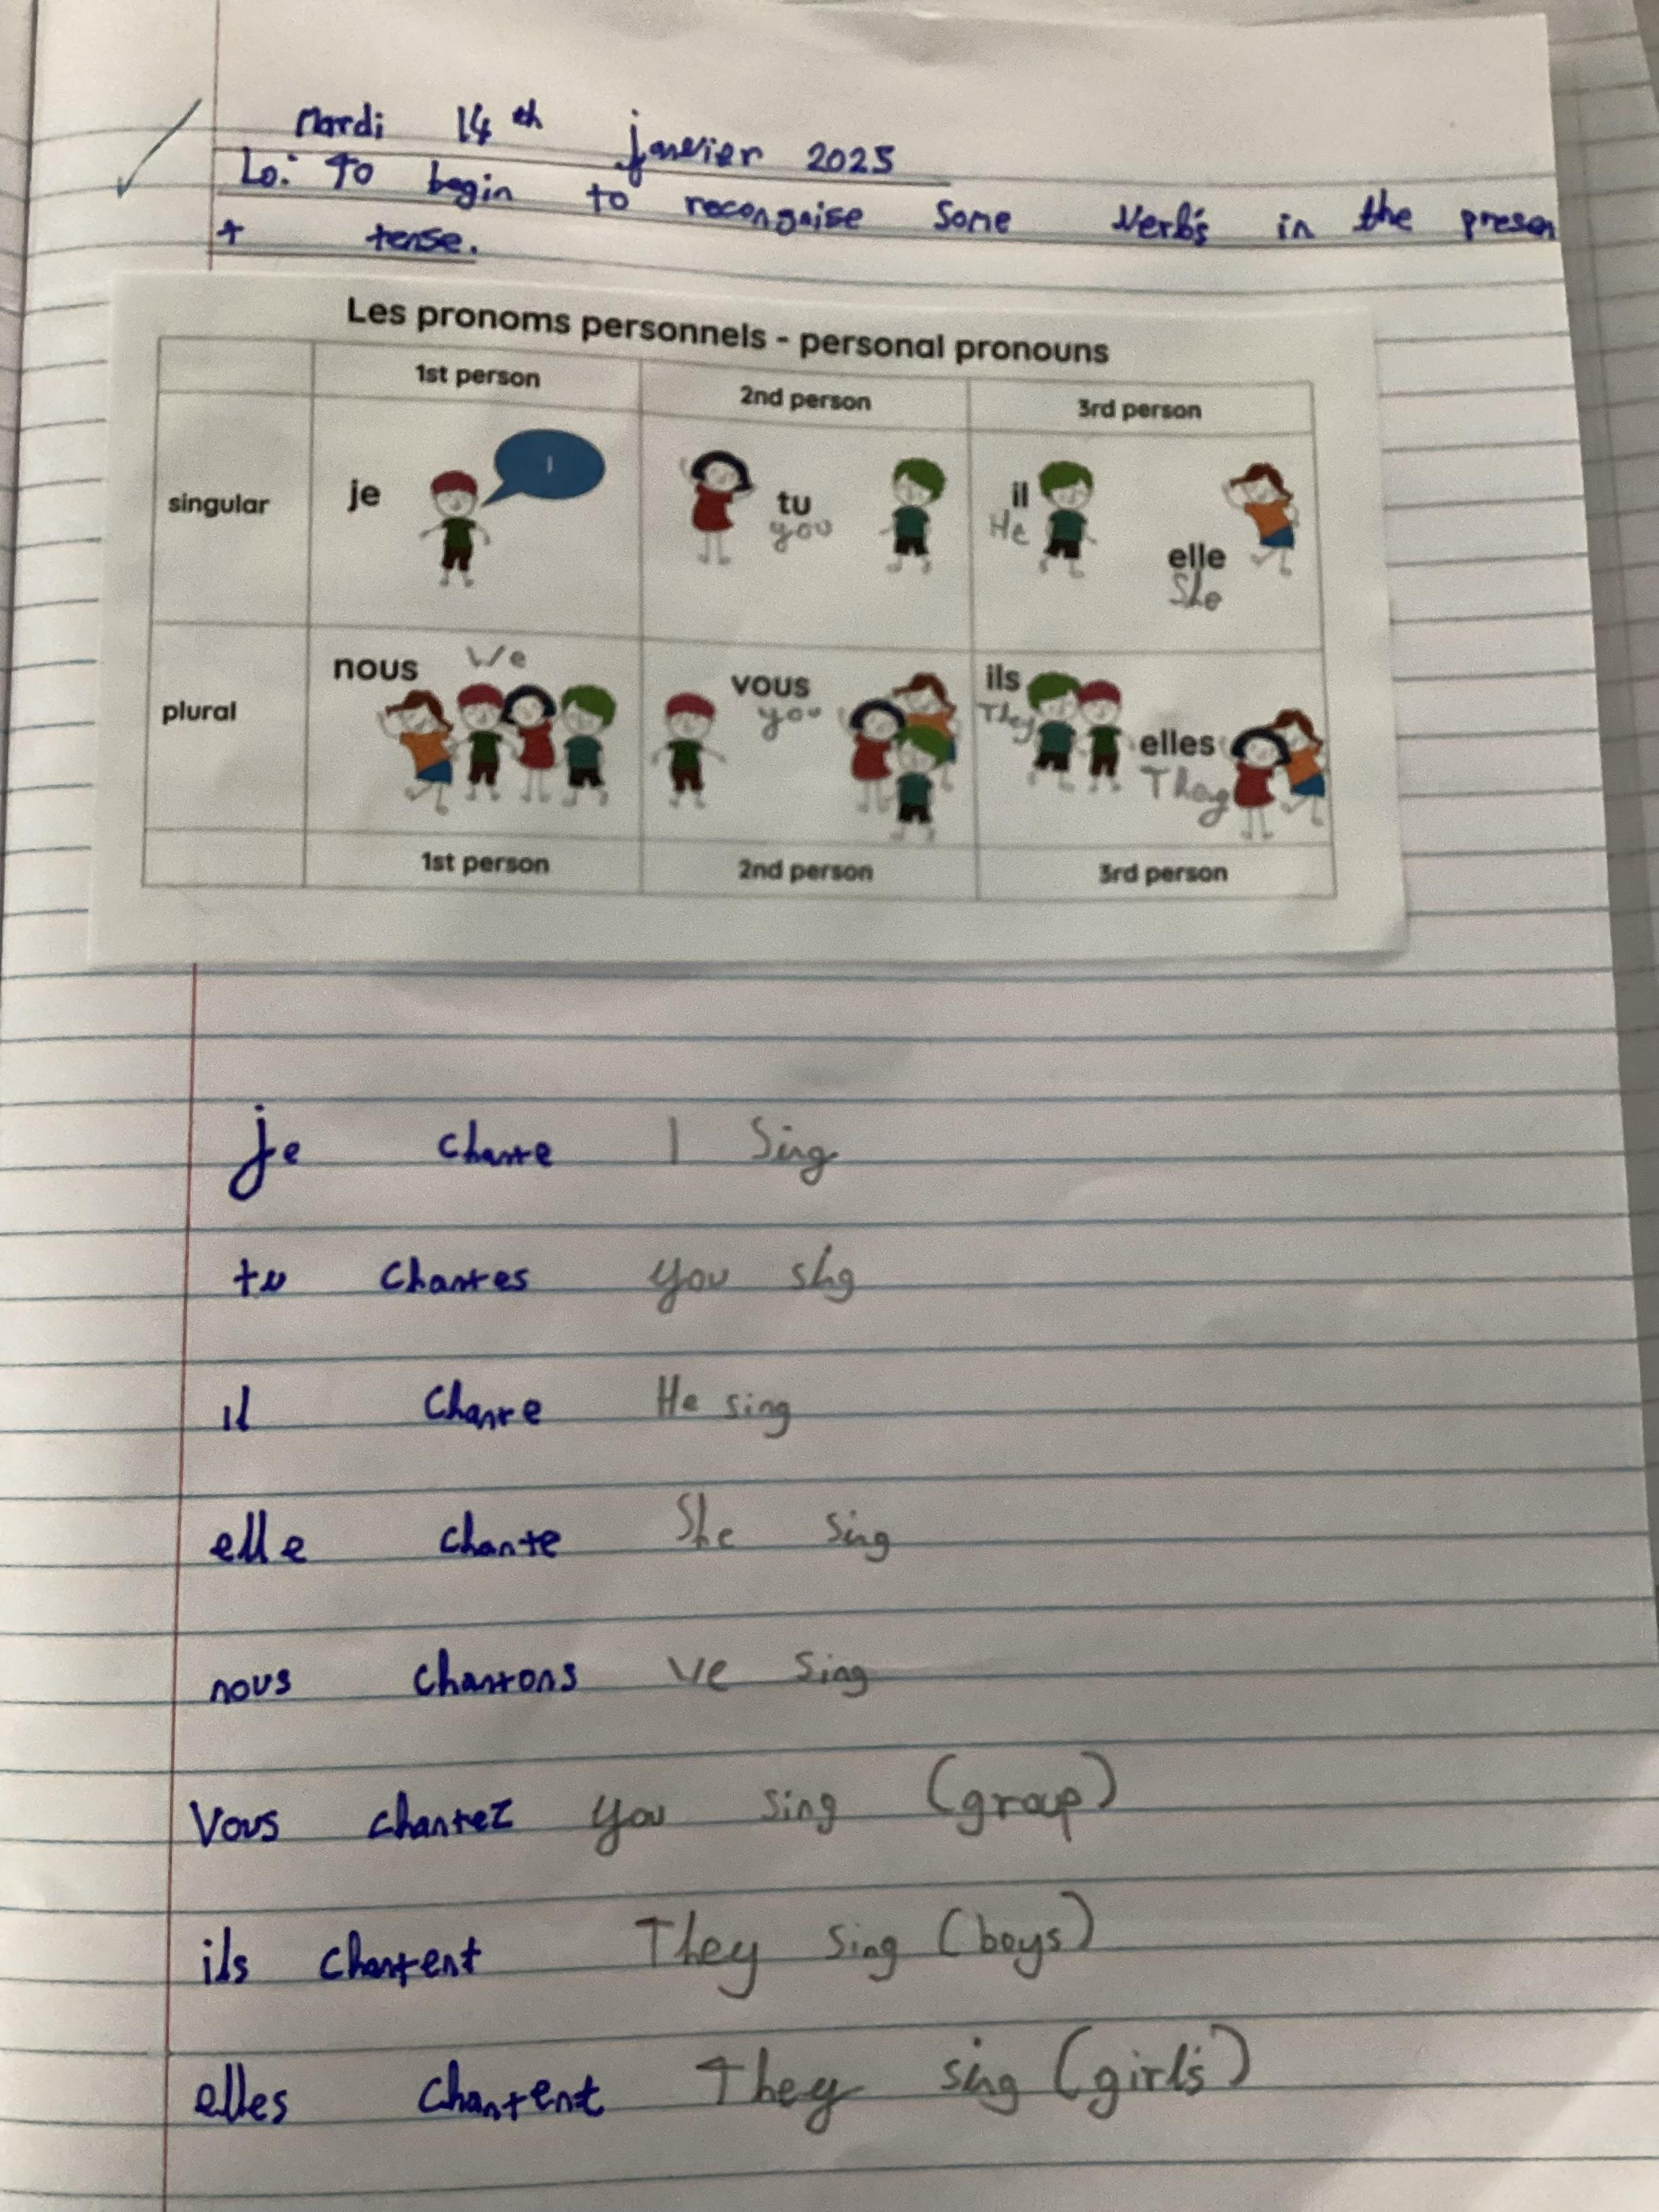 Mardi 14th janvier 2025
Lo: To begin to recongnise Some Verb's in the presen
t tense.
Les pronoms personnels - personal pronouns
1st person 2nd person 3rd person
singular je I tu il elle
you He She
plural nous We vous ils elles
you They They
1st person 2nd person 3rd person
je chante I Sing
tu chantes you sing
il chante He sing
elle chante She sing
nous chantons we sing
Vous chantez you sing (group)
ils chantent They sing (boys)
elles chantent They sing (girl's)